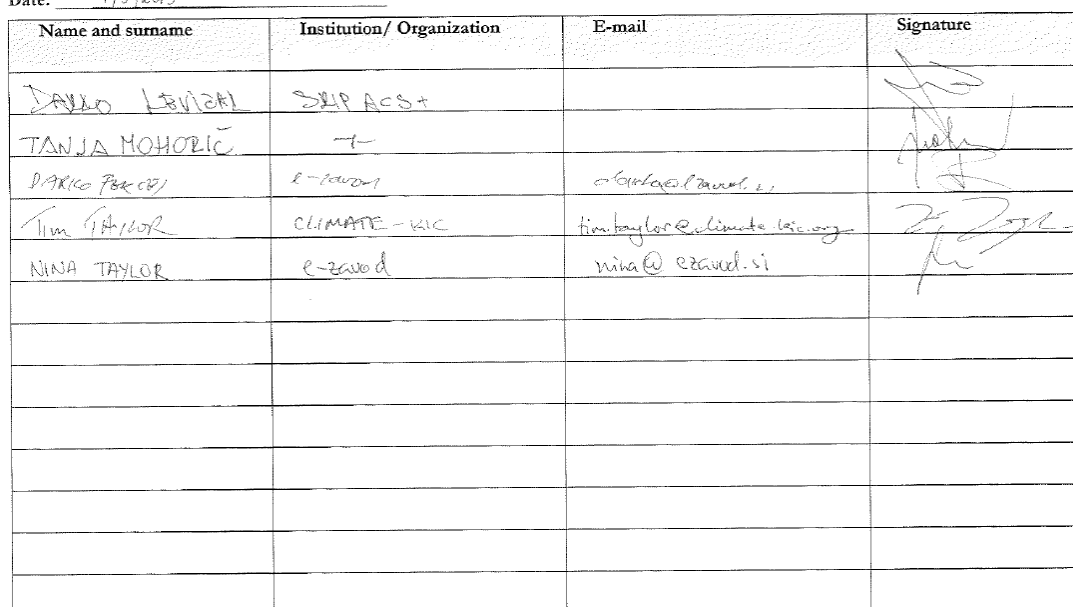 Date:
Name and surname Institution/ Organization E-mail Signature
DARKO SRIP ACS+
TANJA MOHORIČ -//-
DARKO e-zavod
TIM TAYLOR CLIMATE-KIC tim.taylor@climate-kic.org
NINA TAYLOR e-zavod nina@ezavod.si